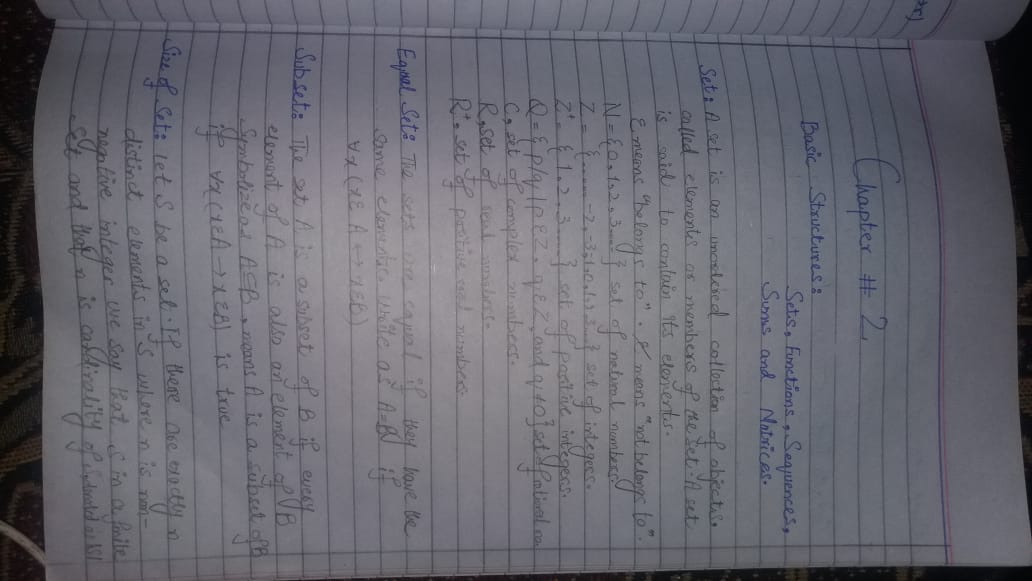 x)
Chapter # 2
Basic Structures:
Sets, Functions, Sequences,
Sums and Matrices.
Set: A set is an unordered collection of objects.
called elements or members of the set. A set
is said to contain its elements.
∈ means "belongs to". ∉ means "not belongs to".
N = {0,1,2,3....} set of natural numbers.
Z = {...... -2,-3,1,0,1,2,3...} set of integers.
Z⁺ = {1,2,3....} set of positive integers.
Q = {p/q | p∈Z, q∈Z, and q≠0} set of rational no.
C, set of complex numbers.
R, set of real numbers.
R⁺, set of positive real numbers.
Equal Set: The sets are equal if they have the
same elements. Write as A=B if
∀x (x∈A ↔ x∈B)
Subset: The set A is a subset of B if every
element of A is also an element of B
Symbolize as A⊆B, means A is a subset of B
if ∀x (x∈A → x∈B) is true
Size of Set: Let S be a set. If there are exactly n
distinct elements in S where n is non-
negative integer we say that S in a finite
Set and that n is cardinality of S, denoted as |S|